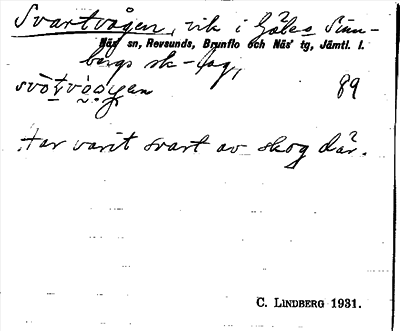 Svartvågen, vik i Gåles Sunn-
Näs sn, Revsunds, Brunflo och Näs' tg, Jämtl. l.
bergs sk-lag,
89
Har varit svart av skog där.
C. LINDBERG 1931.